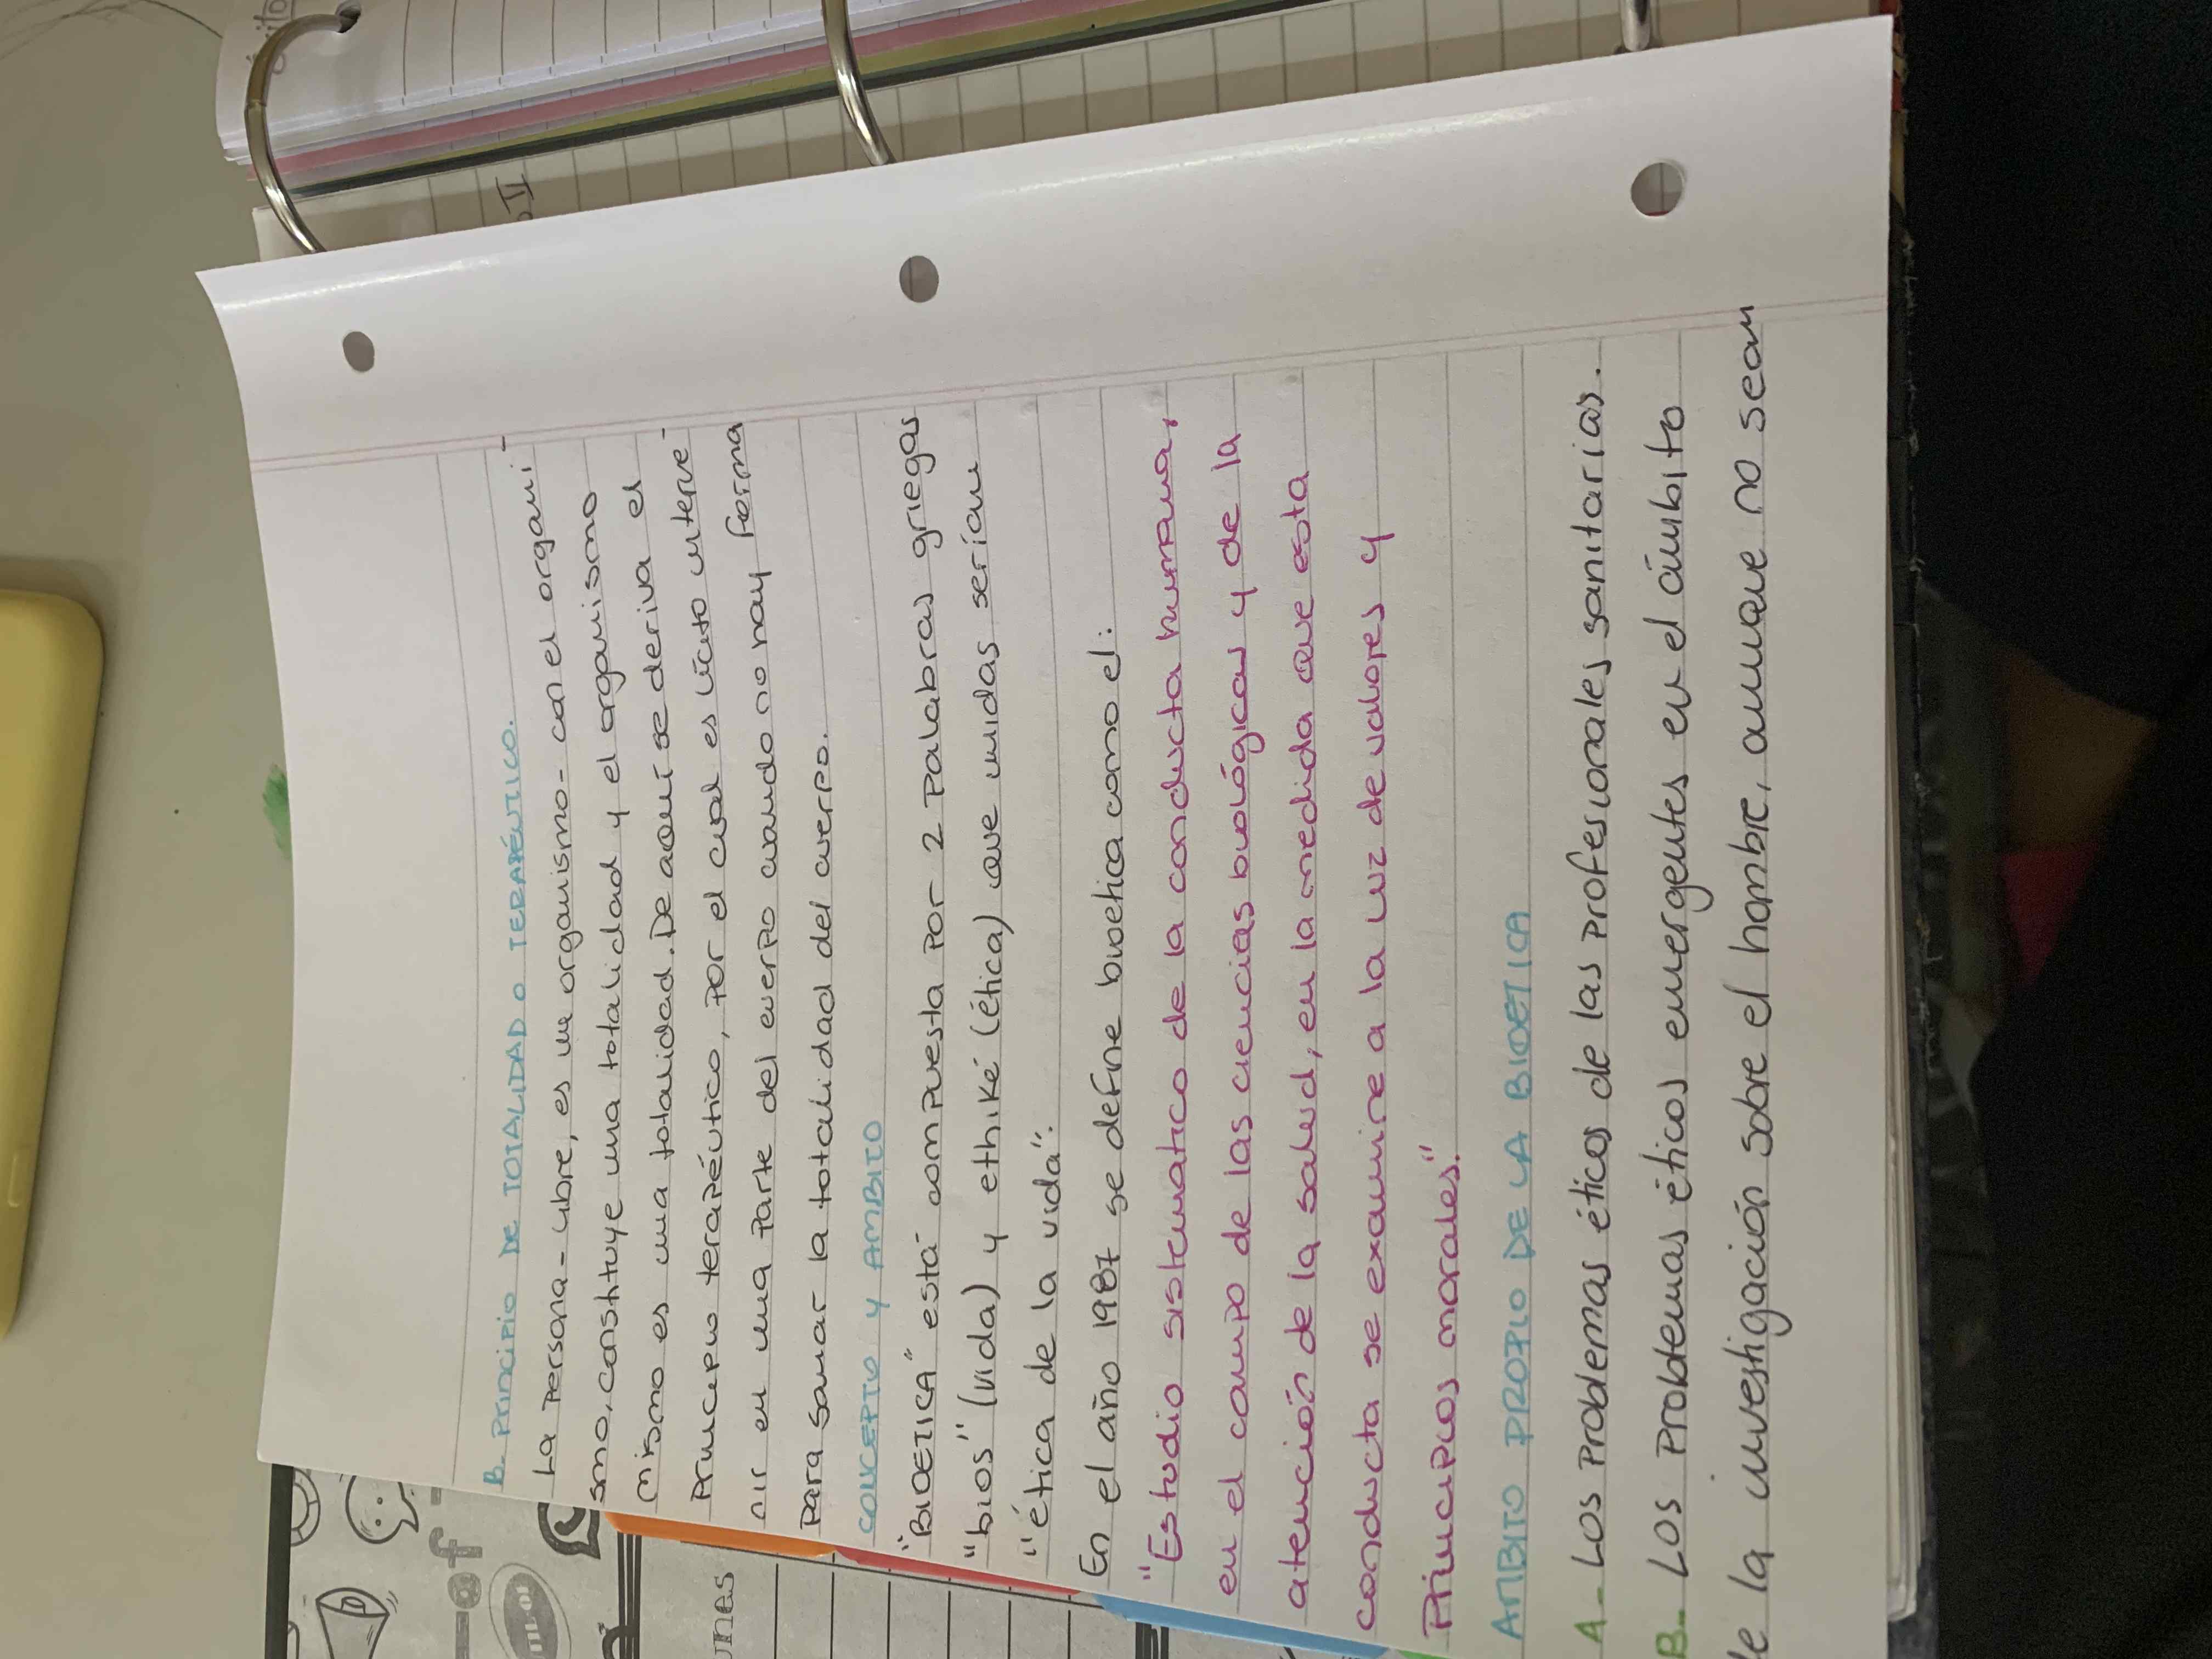 B. Principio DE TOTALIDAD O TERAPÉUTICO.
La persona - libre, es un organismo - con el organi-
smo, constituye una totalidad y el organismo
mismo es una totalidad. De aquí se deriva el
Principio terapéutico, por el cual es lícito interve-
nir en una parte del cuerpo cuando no hay forma
Para sanar la totalidad del cuerpo.
CONCEPTO Y AMBITO
"BIOETICA" está compuesta por 2 palabras griegas
"bios" (vida) y ethiké (ética) que unidas serían
"ética de la vida".
En el año 1987 se define bioetica como el:
"Estudio sistematico de la conducta humana,
en el campo de las ciencias biológicas y de la
atención de la salud, en la medida que esta
conducta se examine a la luz de valores y
Principios morales."
AMBITO PROPIO DE LA BIOETICA
A- Los Problemas éticos de las profesionales sanitarias.
B- Los Problemas éticos emergentes en el ámbito
de la investigación sobre el hombre, aunque no sean
unes
II